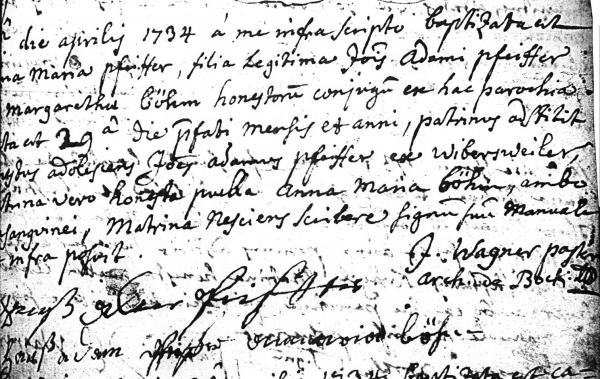 die aprilis 1734 á me infra scripto baptizata est
na Maria pfeiffer, filia legitima Joës Adami pfeiffer
margaretha böhm honestorũ conjugũ ex hac parochia
ta est 29 â die p̃fati mensis et anni, patrinus adstitit
stus adolescens Joẽs adamus pfeiffer ex wibersweiler,
trina vero honesta puella anna maria böhm, ambo
sanguinei, Matrina Nesciens scribere signũ suũ Manuale
infra posuit.
J. Wagner pastor
arch: de Bock:
böhm
1734 baptizata est